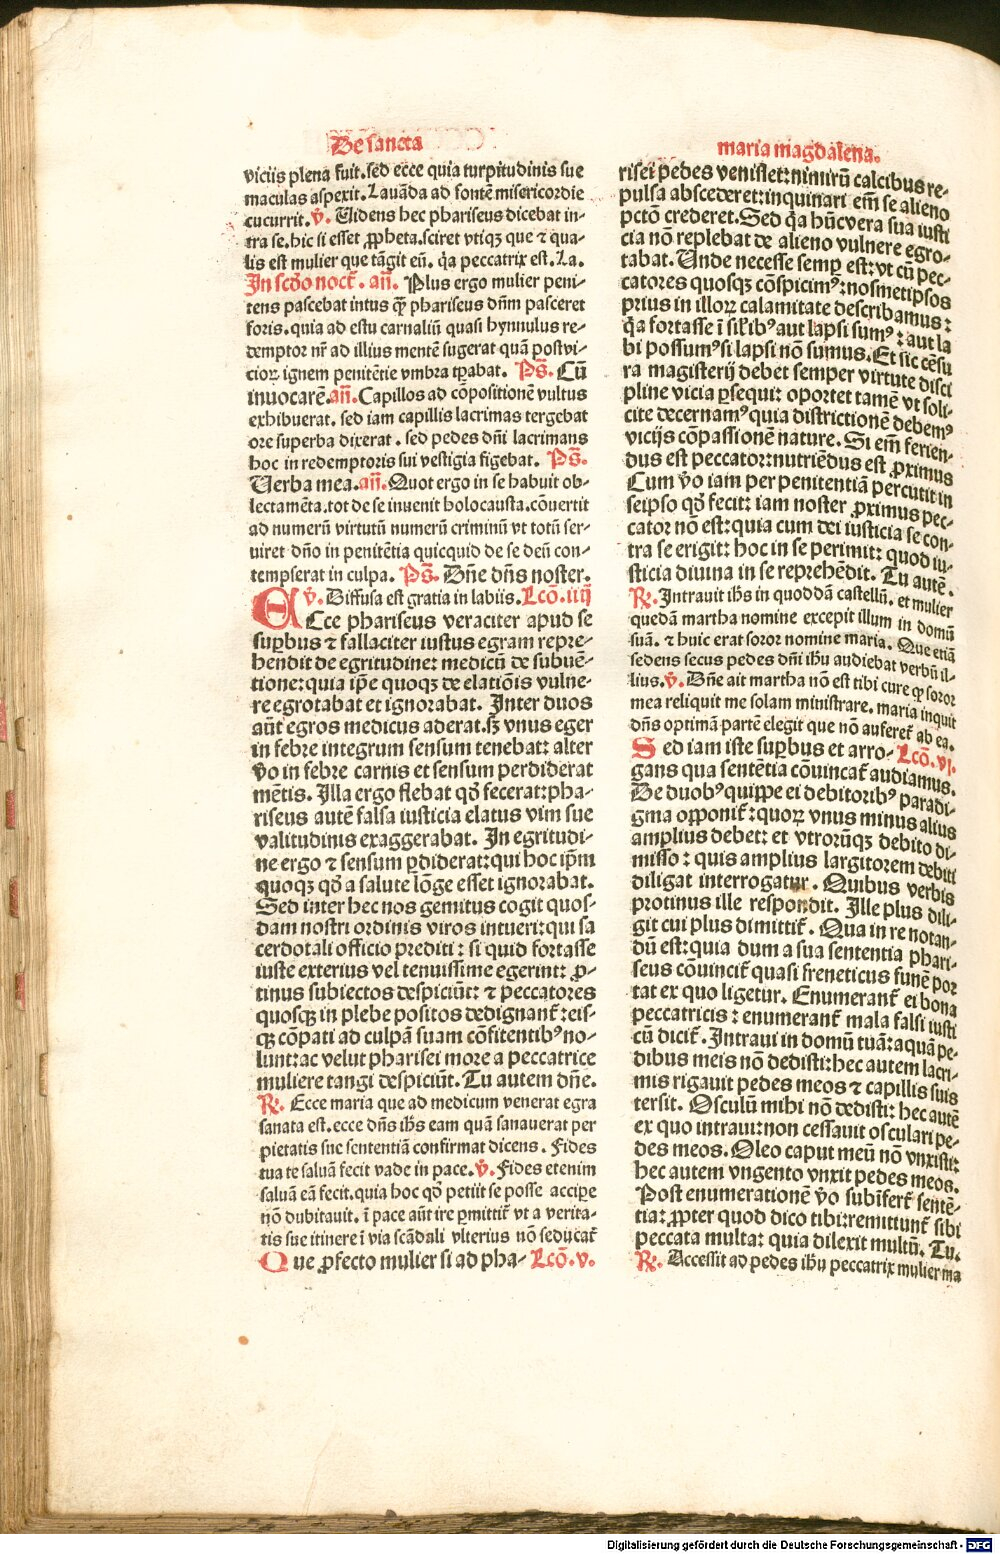 De sancta
viciis plena fuit. sed ecce quia turpitudinis sue
maculas aspexit. Lauãda ad fontẽ misericordie
cucurrit. ꝟ. Videns hec phariseus dicebat in-
tra se. hic si esset ꝓpheta. sciret vtiqꝫ que ⁊ qua-
lis est mulier que tãgit eũ. q̃a peccatrix est. La.
In scďo noct̃. añ. Plus ergo mulier peni-
tens pascebat intus ꝙ̃ phariseus dñm pasceret
foris. quia ad estu carnaliũ quasi hynnulus re-
demptor nr̃ ad illius mentẽ fugerat quã post vi-
cioꝝ ignem penitẽtie vmbra tꝑabat. Ps̃. Cũ
inuocarẽ. añ. Capillos ad cõpositionẽ vultus
exhibuerat. sed iam capillis lacrimas tergebat
ore superba dixerat. sed pedes dñi lacrimans
hoc in redemptoris sui vestigia figebat. Ps̃.
Verba mea. añ. Quot ergo in se habuit ob-
lectamẽta. tot de se inuenit holocausta. cõuertit
ad numerũ virtutũ numerũ criminũ vt totũ ser-
uiret dño in penitẽtia quicquid de se deũ con-
tempserat in culpa. Ps̃. Dñe dñs noster.
ꝟ. Diffusa est gratia in labiis. Lcõ. iiij
Ecce phariseus veraciter apud se
suꝑbus ⁊ fallaciter iustus egram repre-
hendit de egritudine: medicũ de subuẽ-
tione: quia ip̃e quoqꝫ de elatiõis vulne-
re egrotabat et ignorabat. Inter duos
aũt egros medicus aderat. sꝫ vnus eger
in febre integrum sensum tenebat: alter
ṽo in febre carnis et sensum perdiderat
mẽtis. Illa ergo flebat qď fecerat: pha-
riseus autẽ falsa iusticia elatus vim sue
valitudinis exaggerabat. In egritudi-
ne ergo ⁊ sensum ꝑdiderat: qui hoc ip̃m
quoqꝫ qď a salute lõge esset ignorabat.
Sed inter hec nos gemitus cogit quos-
dam nostri ordinis viros intueri: qui sa
cerdotali officio prediti : si quid fortasse
iuste exterius vel tenuissime egerint: ꝓ-
tinus subiectos despiciũt: ⁊ peccatores
quosqꝫ in plebe positos dedignant̃: eis-
qꝫ cõpati ad culpã suam cõfitentibꝰ no-
lunt: ac velut pharisei more a peccatrice
muliere tangi despiciũt. Tu autem dñe.
℟. Ecce maria que ad medicum venerat egra
sanata est. ecce dñs ihũs eam quã sanauerat per
pietatis sue sententiã confirmat dicens. Fides
tua te saluã fecit vade in pace. ꝟ. Fides etenim
saluã eã fecit. quia hoc qď petiit se posse accipe
nõ dubitauit. ĩ pace aũt ire ꝑmittit̃ vt a verita-
tis sue itinere ĩ via scãdali vlterius nõ seducat̃
Que ꝓfecto mulier si ad pha- Lcõ. v.
maria magdalena.
risei pedes venisset: nimirũ calcibus re-
pulsa abscederet: inquinari em̃ se alieno
pctõ crederet. Sed q̃a hũc vera sua iusti
cia nõ replebat de alieno vulnere egro-
tabat. Unde necesse semꝑ est: vt cũ pec-
catores quosqꝫ cõspicimꝰ: nosmetipsos
prius in illoꝝ calamitate describamus:
q̃a fortasse ĩ sil̃ibꝰ aut lapsi sumꝰ : aut la
bi possumꝰ si lapsi nõ sumus. Et sic cẽsu
ra magisterij debet semper virtute disci
pline vicia ꝑsequi: oportet tamẽ vt soli-
cite decernamꝰ quia districtionẽ debemꝰ
vicijs cõpassionẽ nature. Si em̃ ferien-
dus est peccator: nutriẽdus est ꝓximus
Cum ṽo iam per penitentiã percutit in
seipso qď fecit: iam noster ꝓximus pec-
cator nõ est: quia cum dei iusticia se con-
tra se erigit: hoc in se perimit: quod iu-
sticia diuina in se reprehẽdit. Tu autẽ.
℟. Intrauit ihs̃ in quoddã castellũ. et mulier
quedã martha nomine excepit illum in domũ
suã. ⁊ huic erat soror nomine maria. Que etiã
sedens secus pedes dñi ihũ audiebat verbũ il-
lius. ꝟ. Dñe ait martha nõ est tibi cure ꝙ soror
mea reliquit me solam ministrare. maria inquit
dñs optimã partẽ elegit que nõ auferet̃ ab ea.
Sed iam iste suꝑbus et arro- Lcõ. vj.
gans qua sentẽtia cõuincat̃ audiamus.
De duobꝰ quippe ei debitoribꝰ paradi-
gma opponit̃: quoꝝ vnus minus alius
amplius debet: et vtrorũqꝫ debito di-
misso : quis amplius largitorem debiti
diligat interrogatur. Quibus verbis
protinus ille respondit. Ille plus dili-
git cui plus dimittit̃. Qua in re notan-
dũ est: quia dum a sua sententia phari-
seus cõuincit̃ quasi freneticus funẽ por
tat ex quo ligetur. Enumerant̃ ei bona
peccatricis : enumerant̃ mala falsi iusti
cũ dicit̃. Intraui in domũ tuã: aquã pe-
dibus meis nõ dedisti: hec autem lacri-
mis rigauit pedes meos ⁊ capillis suis
tersit. Osculũ mihi nõ dedisti: hec autẽ
ex quo intraui: non cessauit osculari pe-
des meos. Oleo caput meũ nõ vnxisti:
hec autem vngento vnxit pedes meos.
Post enumerationẽ ṽo subĩfert̃ sentẽ-
tia: ꝓpter quod dico tibi: remittunt̃ sibi
peccata multa: quia dilexit multũ. Tu.
℟. Accessit ad pedes ihũ peccatrix mulier ma
Digitalisierung gefördert durch die Deutsche Forschungsgemeinschaft - DFG